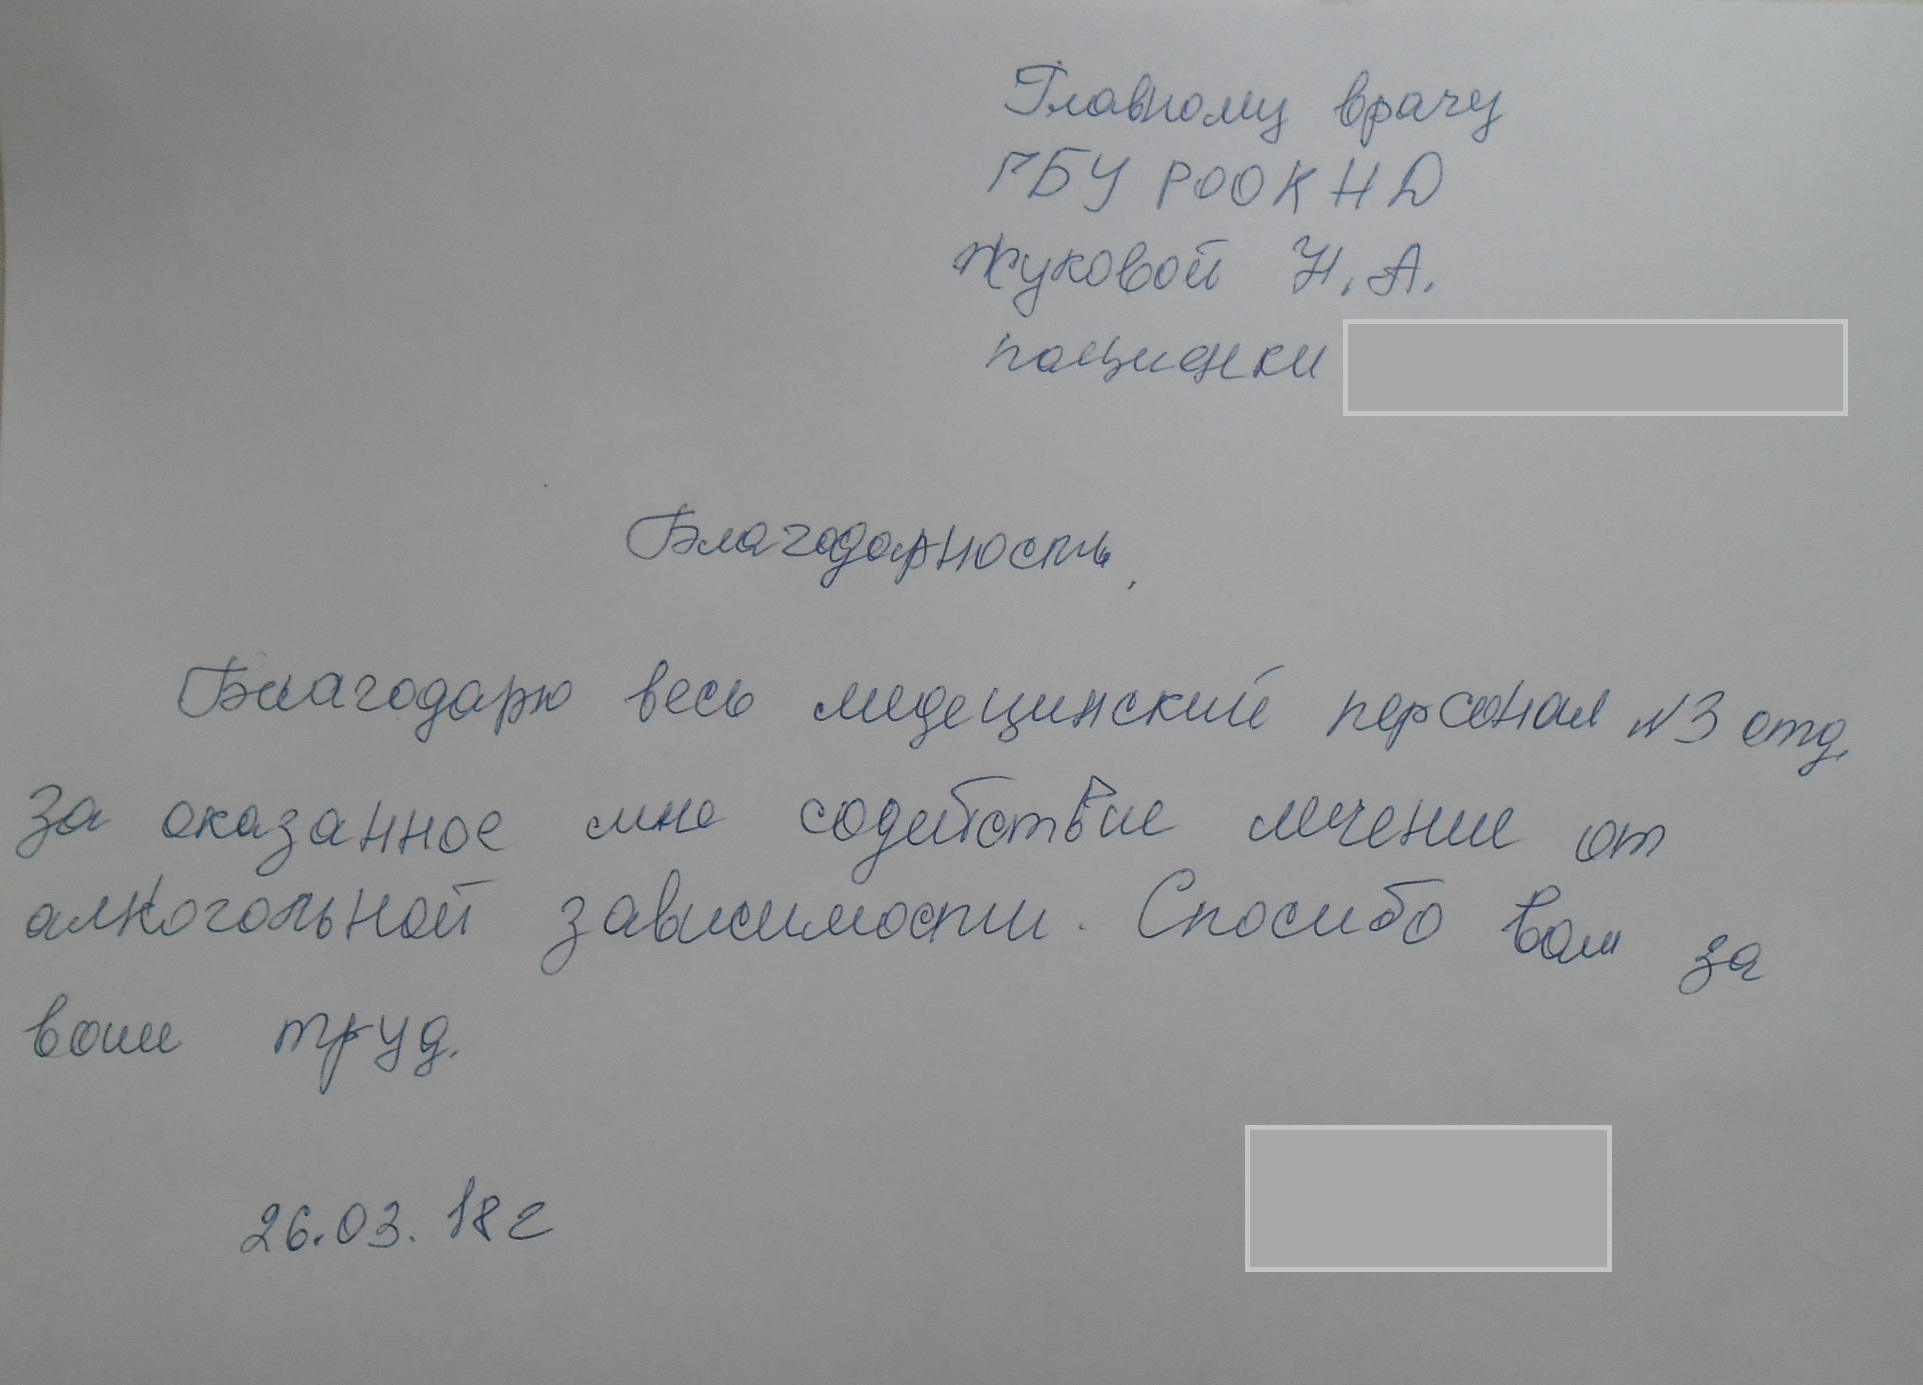 Главному врачу
ГБУ РООКНД
Жуковой Н.А.
пациенки
Благодарность.
Благодарю весь медецинский персонал N3 отд.
за оказанное мне содействие лечение от
алкогольной зависимости. Спосибо вам за
ваш труд.
26.03.18г